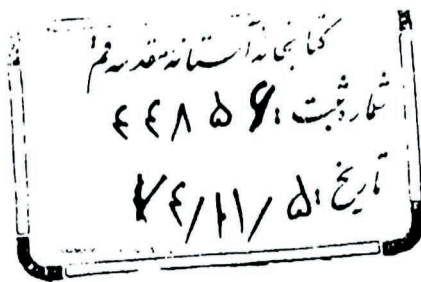 کتابخانه آستانه مقدسه قم
شماره ثبت: ۴۴۸۵۶
تاریخ: ۷۴/۱۱/۵